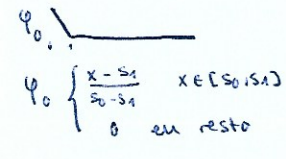 φ₀
φ₀ { (x - s₁)/(s₀ - s₁) x ∈ [s₀, s₁]
0 en resto